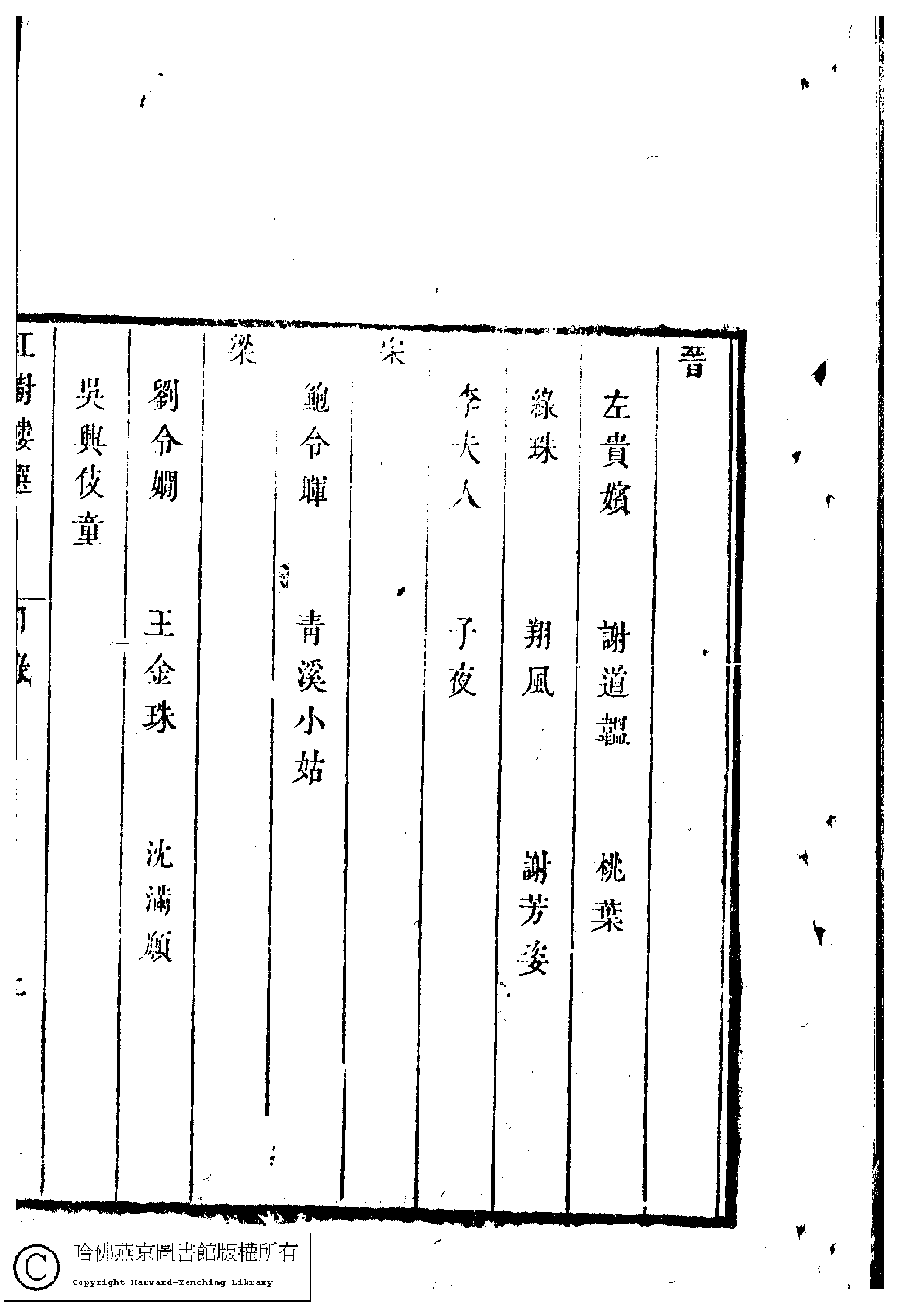 晉
左貴嬪 謝道韞 桃葉
綠珠 翔風 謝芳姿
李夫人 子夜
宋
鮑令暉 青溪小姑
梁
劉令嫺 王金珠 沈滿願
吳興伎童
紅樹樓選 目錄 二
哈佛燕京圖書館版權所有
Copyright Harvard-Yenching Library